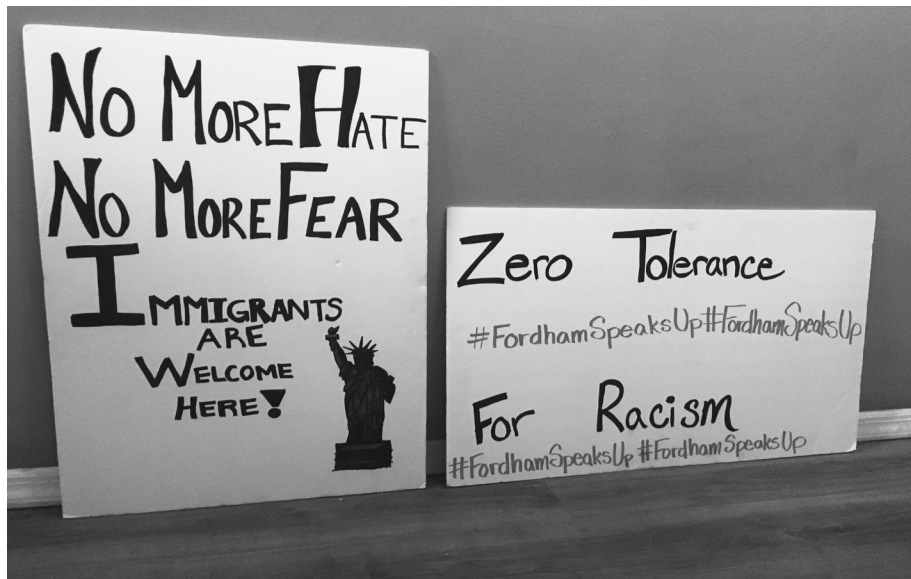 No More Hate
No More Fear
Immigrants
are
Welcome
Here!
Zero Tolerance
#FordhamSpeaksUp#FordhamSpeaksUp
For Racism
#FordhamSpeaksUp #FordhamSpeaksUp